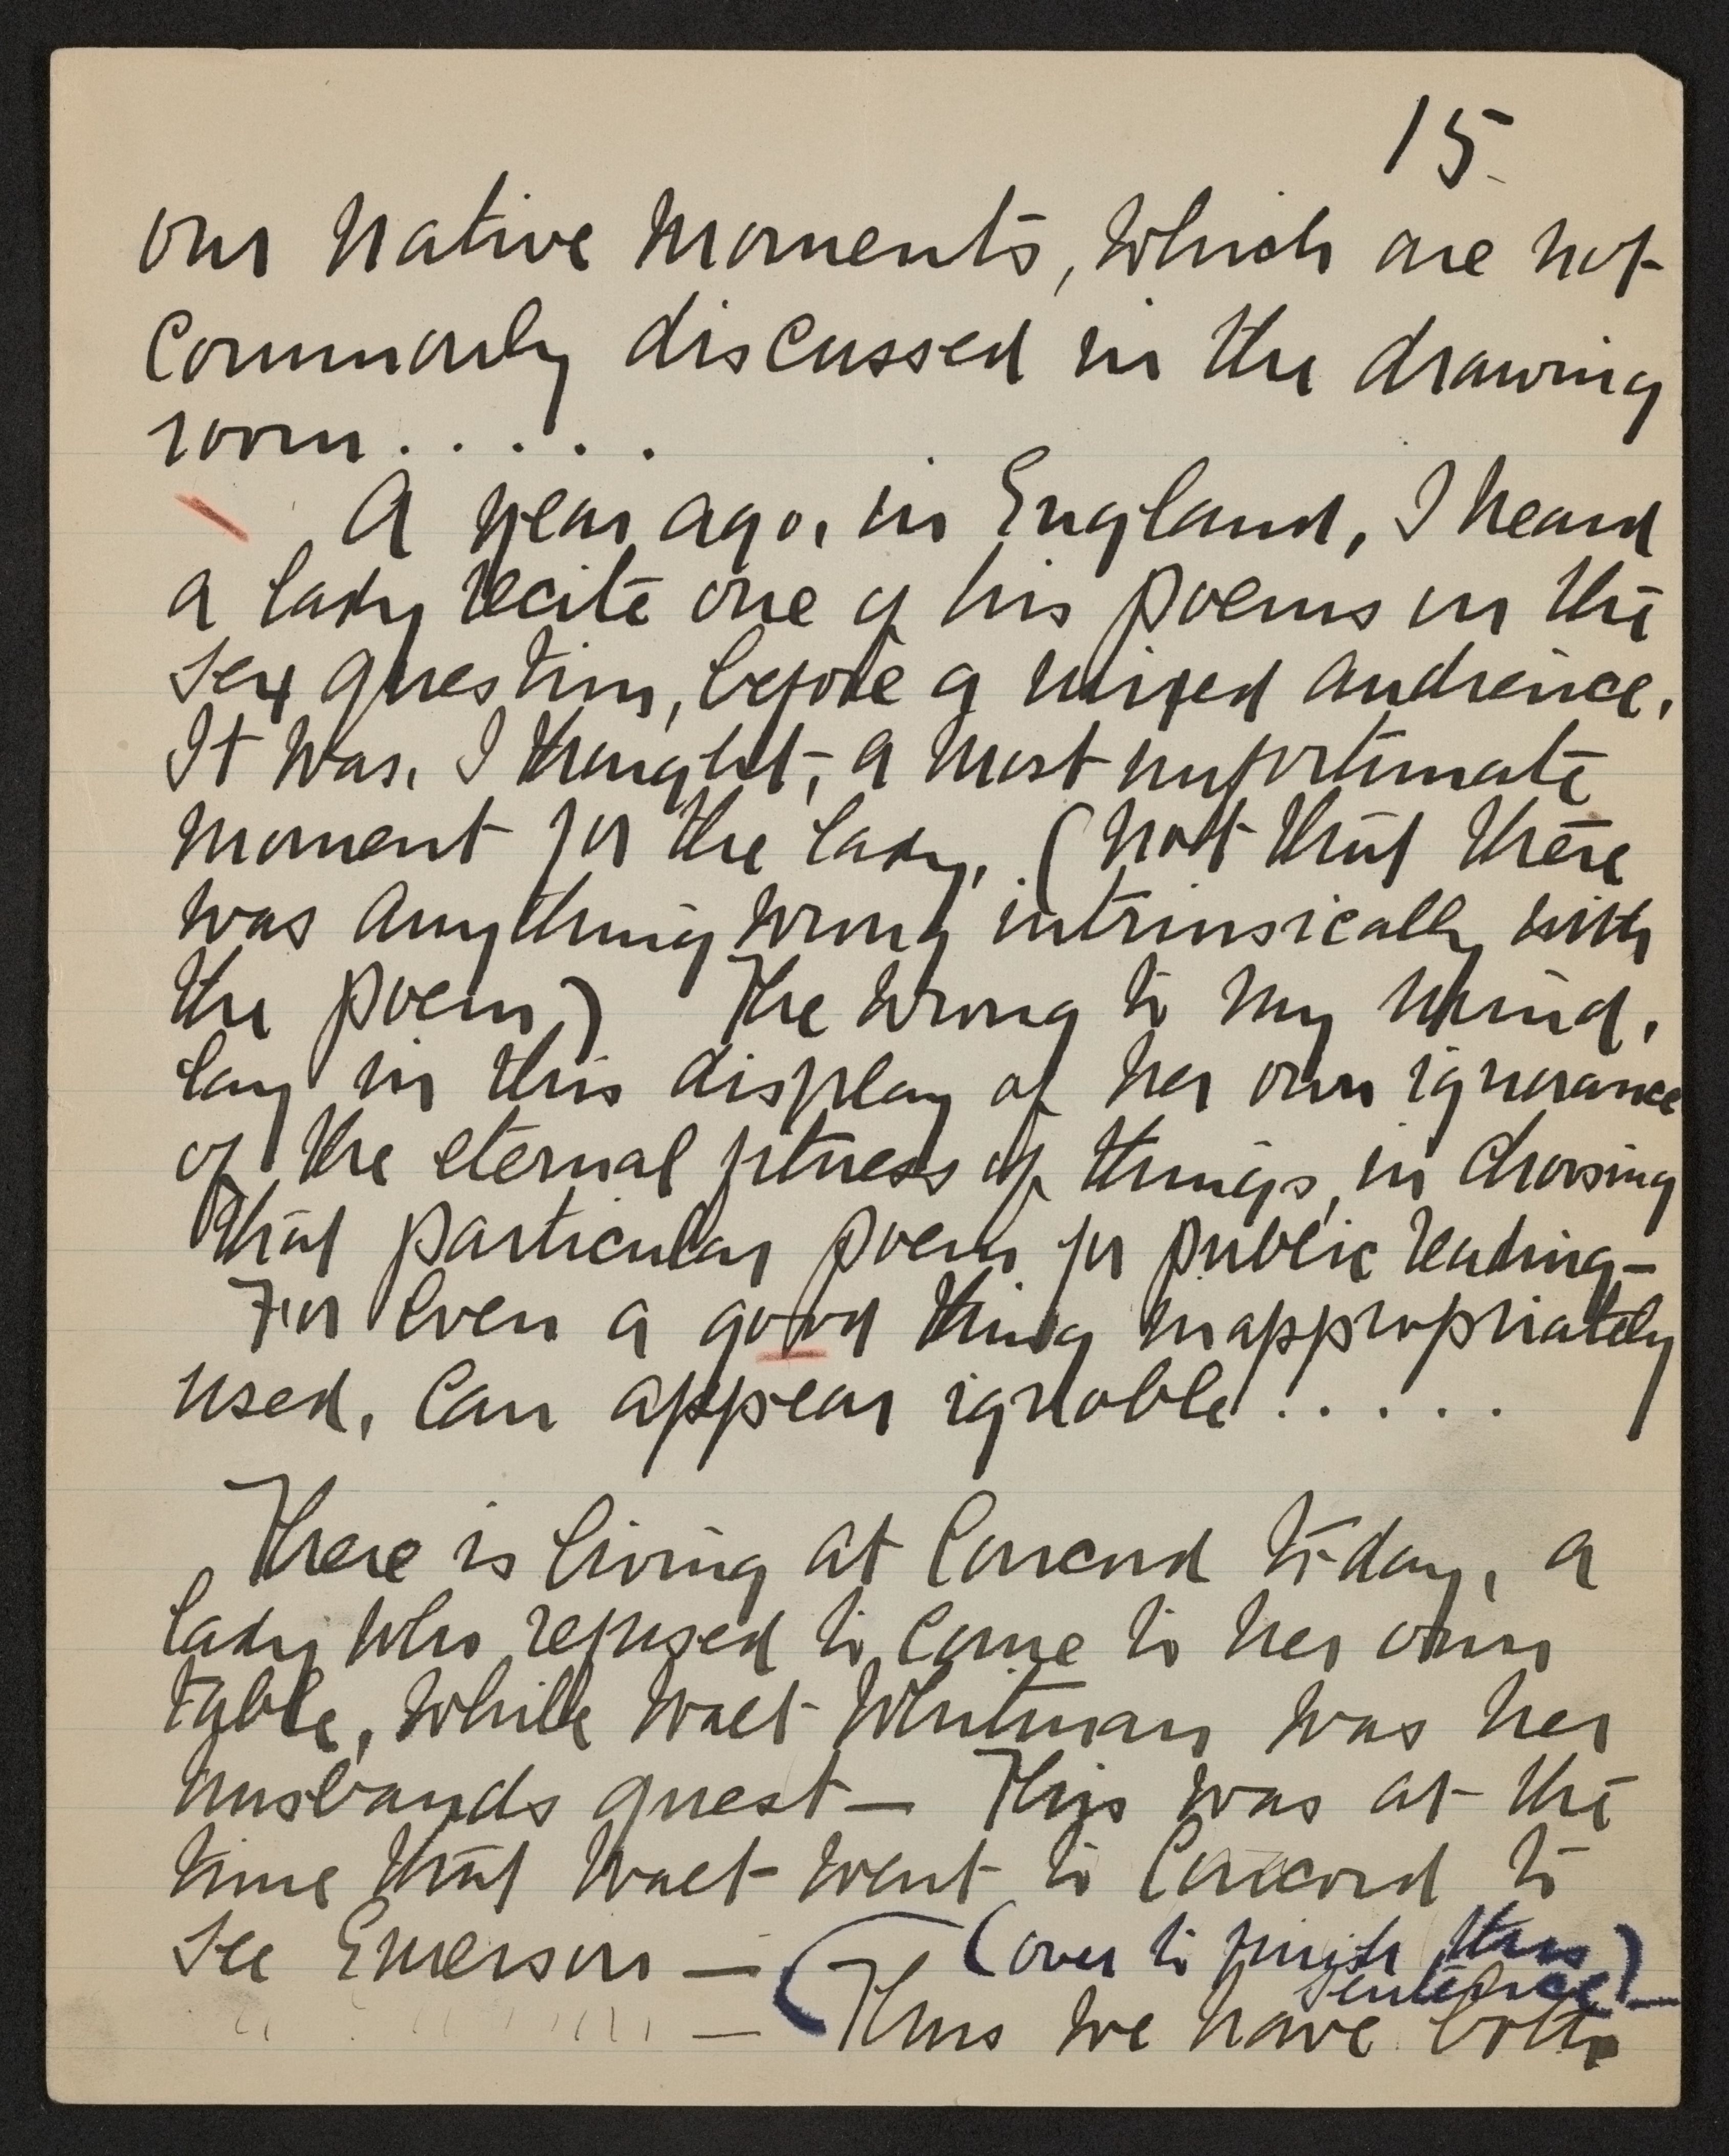 15
our native moments, which are not
commonly discussed in the drawing
room.....
A year ago, in England, I heard
a lady recite one of his poems on the
sex question, before a mixed audience.
It was, I thought, a most unfortunate
moment for the lady. (not that there
was anything wrong intrinsically with
the poem) The wrong to my mind,
lay in this display of her own ignorance
of the eternal fitness of things, in choosing
that particular poem for public reading—
For even a good thing inappropriately
used, can appear ignoble.....
There is living at Concord to-day, a
lady who refused to come to her own
table, while Walt Whitman was her
husbands guest— This was at the
time that Walt went to Concord to
see Emerson— (over to finish this
sentence)—
— (Thus we have both